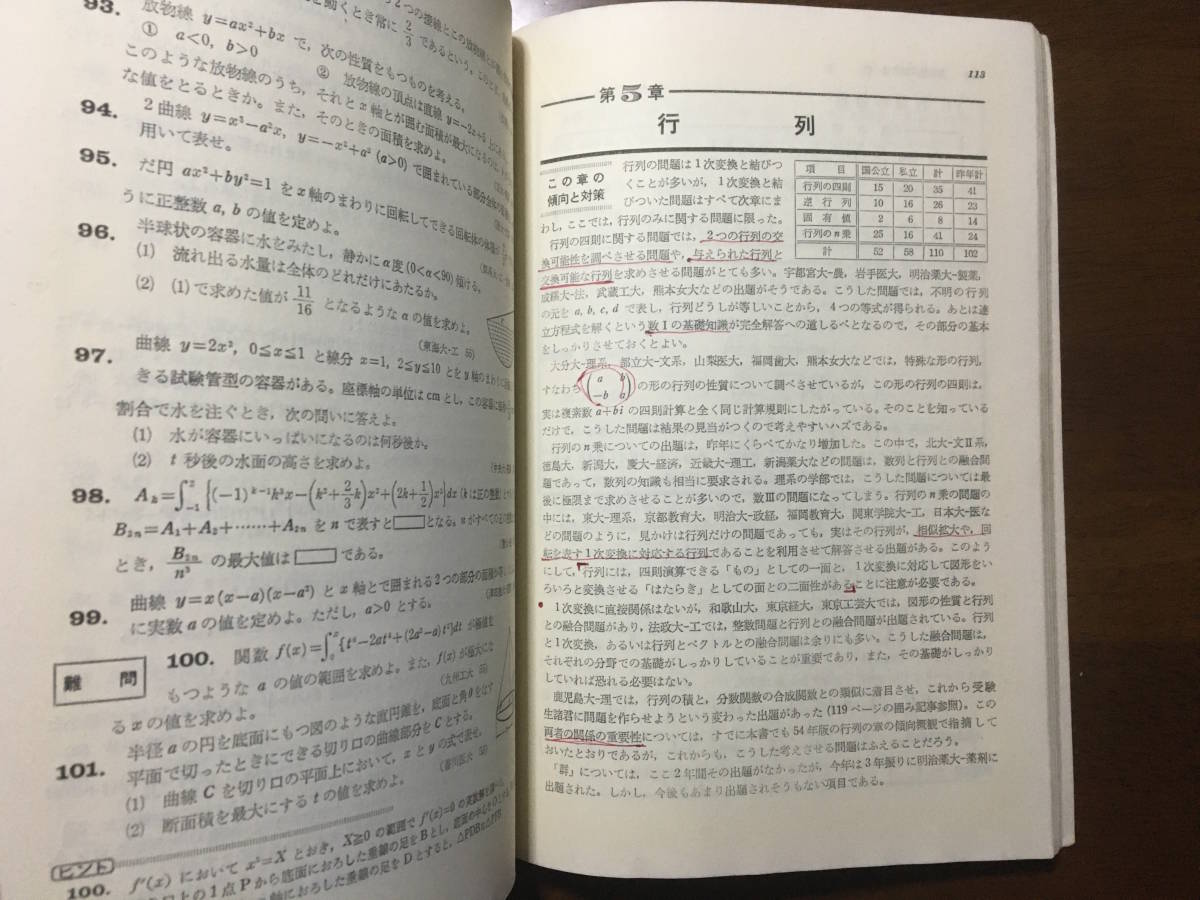 93. 放物線 y=ax²+bx で,次の性質をもつものを考える。
① a<0, b>0
② 放物線の頂点は直線
このような放物線のうち,それと x 軸とが囲む面積が最大になるのは
な値をとるときか。また,そのときの面積を求めよ。
94. 2曲線 y=x³−a²x, y=−x²+a² (a>0) で囲まれている部分
用いて表せ。
95. だ円 ax²+by²=1 を x 軸のまわりに回転してできる回転体の
うに正整数 a, b の値を定めよ。
96. 半球状の容器に水をみたし,静かに α 度 (0<α<90) 傾ける。
(1) 流れ出る水量は全体のどれだけにあたるか。
(2) (1)で求めた値が 11/16 となるような α の値を求めよ。
(東海大-工 55)
97. 曲線 y=2x³, 0≦x≦1 と線分 x=1, 2≦y≦10 とを y 軸のまわりに
きる試験管型の容器がある。座標軸の単位は cm とし,この容器に
割合で水を注ぐとき,次の問いに答えよ。
(1) 水が容器にいっぱいになるのは何秒後か。
(2) t 秒後の水面の高さを求めよ。
98.
B₂ₙ=A₁+A₂+……+A₂ₙ を n で表すと□となる。
とき, B₂ₙ/n³ の最大値は□である。
99. 曲線 y=x(x−a)(x−a²) と x 軸とで囲まれる2つの部分の面積が
に実数 a の値を定めよ。ただし,a>0 とする。
難問
100. 関数 f(x)=∫₀ˣ{t⁴−2at³+(2a²−a)t²}dt が極値を
もつような a の値の範囲を求めよ。また,f(x) が極大にな
る x の値を求めよ。
(九州工大 55)
101. 半径 a の円を底面にもつ図のような直円錐を,底面と角 θ をなす
平面で切ったときにできる切り口の曲線部分を C とする。
(1) 曲線 C を切り口の平面上において,x と y の式で表せ。
(2) 断面積を最大にする t の値を求めよ。
(香川医大 55)
ヒント
100. f′(x) において x²=X とおき,X≧0 の範囲で f′(x)=0 の
上の1点Pから底面におろした垂線の足をBとし,
におろした垂線の足をDとすると,
113
第5章
行列
この章の
傾向と対策
項目 国公立 私立 計 昨年計
行列の四則 15 20 35 41
逆行列 10 16 26 23
固有値 2 6 8 14
行列のn乗 25 16 41 24
計 52 58 110 102
行列の問題は1次変換と結びつ
くことが多いが,1次変換と結
びついた問題はすべて次章にま
わし,ここでは,行列のみに関する問題に限った。
行列の四則に関する問題では,2つの行列の交
換可能性を調べさせる問題や,与えられた行列と
交換可能な行列を求めさせる問題がとても多い。宇都宮大-農,岩手医大,明治薬大-製薬,
成蹊大-法,武蔵工大,熊本女大などの出題がそうである。こうした問題では,不明の行列
の元を a, b, c, d で表し,行列どうしが等しいことから,4つの等式が得られる。あとは連
立方程式を解くという数Ⅰの基礎知識が完全解答への道しるべとなるので,その部分の基本
をしっかりさせておくとよい。
大分大-理系,都立大-文系,山梨医大,福岡歯大,熊本女大などでは,特殊な形の行列,
すなわち (a b
−b a) の形の行列の性質について調べさせているが,この形の行列の四則は,
実は複素数 a+bi の四則計算と全く同じ計算規則にしたがっている。そのことを知っている
だけで,こうした問題は結果の見当がつくので考えやすいハズである。
行列のn乗についての出題は,昨年にくらべてかなり増加した。この中で,北大-文Ⅱ系,
徳島大,新潟大,慶大-経済,近畿大-理工,新潟薬大などの問題は,数列と行列との融合問
題であって,数列の知識も相当に要求される。理系の学部では,こうした問題については最
後に極限まで求めさせることが多いので,数Ⅲの問題になってしまう。行列のn乗の問題の
中には,東大-理系,京都教育大,明治大-政経,福岡教育大,関東学院大-工,日本大-医な
どの問題のように,見かけは行列だけの問題であっても,実はその行列が,相似拡大や,回
転を表す1次変換に対応する行列であることを利用させて解答させる出題がある。このよう
にして,行列には,四則演算できる「もの」としての一面と,1次変換に対応して図形をい
ろいろと変換させる「はたらき」としての面との二面性があることに注意が必要である。
1次変換に直接関係はないが,和歌山大,東京経大,東京工芸大では,図形の性質と行列
との融合問題があり,法政大-工では,整数問題と行列との融合問題が出題されている。行列
と1次変換,あるいは行列とベクトルとの融合問題は余りにも多い。こうした融合問題は,
それぞれの分野での基礎がしっかりしていることが重要であり,また,その基礎がしっかり
していれば恐れる必要はない。
鹿児島大-理では,行列の積と,分数関数の合成関数との類似に着目させ,これから受験
生諸君に問題を作らせようという変わった出題があった(119ページの囲み記事参照)。この
両者の関係の重要性については,すでに本書でも54年版の行列の章の傾向概観で指摘して
おいたとおりであるが,これからも,こうした考えさせる問題はふえることだろう。
「群」については,ここ2年間その出題がなかったが,今年は3年振りに明治薬大-薬剤に
出題された。しかし,今後もあまり出題されそうもない項目である。